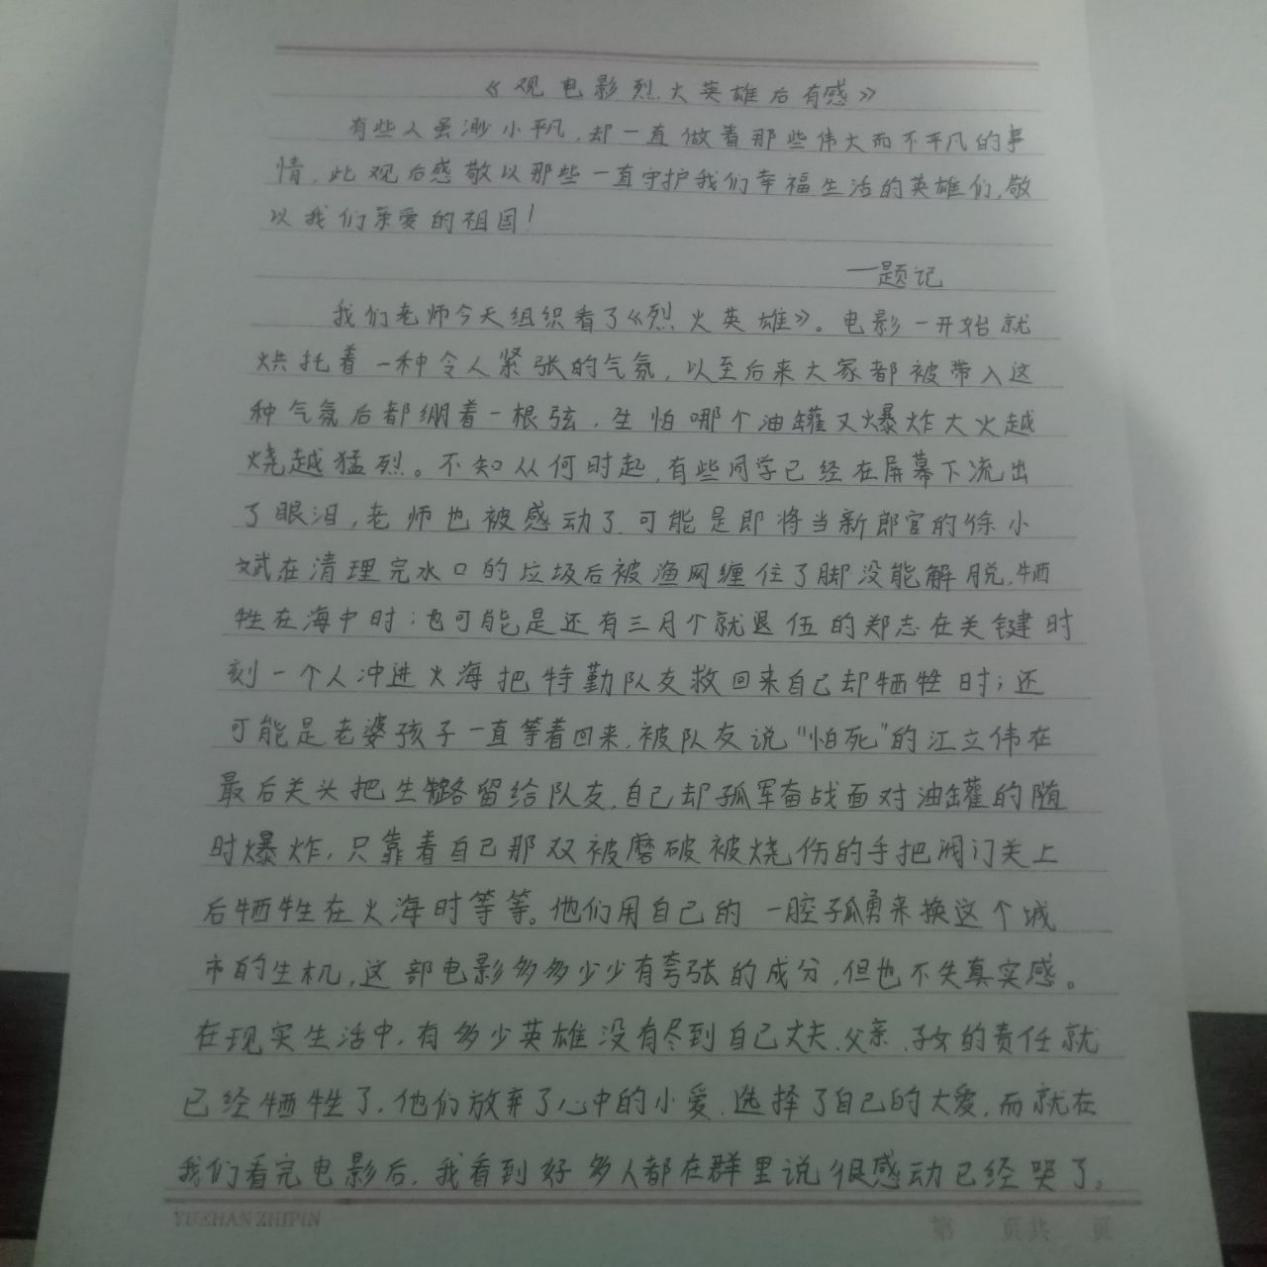 《观电影烈火英雄后有感》
有些人虽渺小平凡，却一直做着那些伟大而不平凡的事
情，此观后感敬以那些一直守护我们幸福生活的英雄们，敬
以我们亲爱的祖国！
—题记
我们老师今天组织看了《烈火英雄》。电影一开始就
烘托着一种令人紧张的气氛，以至后来大家都被带入这
种气氛后都绷着一根弦，生怕哪个油罐又爆炸大火越
烧越猛烈。不知从何时起，有些同学已经在屏幕下流出
了眼泪，老师也被感动了可能是即将当新郎官的徐小
斌在清理完水口的垃圾后被渔网缠住了脚没能解脱，牺
牲在海中时；也可能是还有三月个就退伍的郑志在关键时
刻一个人冲进火海把特勤队友救回来自己却牺牲时；还
可能是老婆孩子一直等着回来，被队友说“怕死”的江立伟在
最后关头把生路留给队友，自己却孤军奋战面对油罐的随
时爆炸，只靠着自己那双被磨破被烧伤的手把阀门关上
后牺牲在火海时等等。他们用自己的一腔孤勇来换这个城
市的生机，这部电影多多少少有夸张的成分，但也不失真实感。
在现实生活中，有多少英雄没有尽到自己丈夫、父亲、子女的责任就
已经牺牲了，他们放弃了心中的小爱，选择了自己的大爱，而就在
我们看完电影后，我看到好多人都在群里说很感动已经哭了。
YUEHAN ZHIPIN
第 页共 页